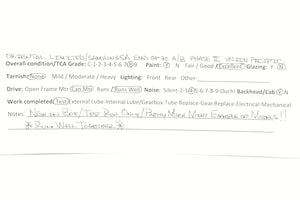 ORIENTAL LIMITED/SAMHONGSA EMD GP30 A/B PHASE II UNION PACIFIC
Overall condition/TCA Grade: C-1-2-3-4-5-6-7-8-9 Paint: Y N Fair / Good / Excellent Glazing: Y N
Tarnish: None Mild / Moderate / Heavy Lighting: Front Rear Other:
Drive: Open Frame Mtr Can Mtr Runs / Runs Well Noise: Silent-2-3-4-5-6-7-8-9-Ouch! Backhead/Cab Y N
Work completed: Test External Lube-Internal Lube/Gearbox-Tube Replace-Gear Replace-Electrical-Mechanical
Notes: NEW IN BOX/TEST RUN ONLY/PRETTY MUCH MINT EXAMPLE OF MODELS!!
* RUN WELL TOGETHER *